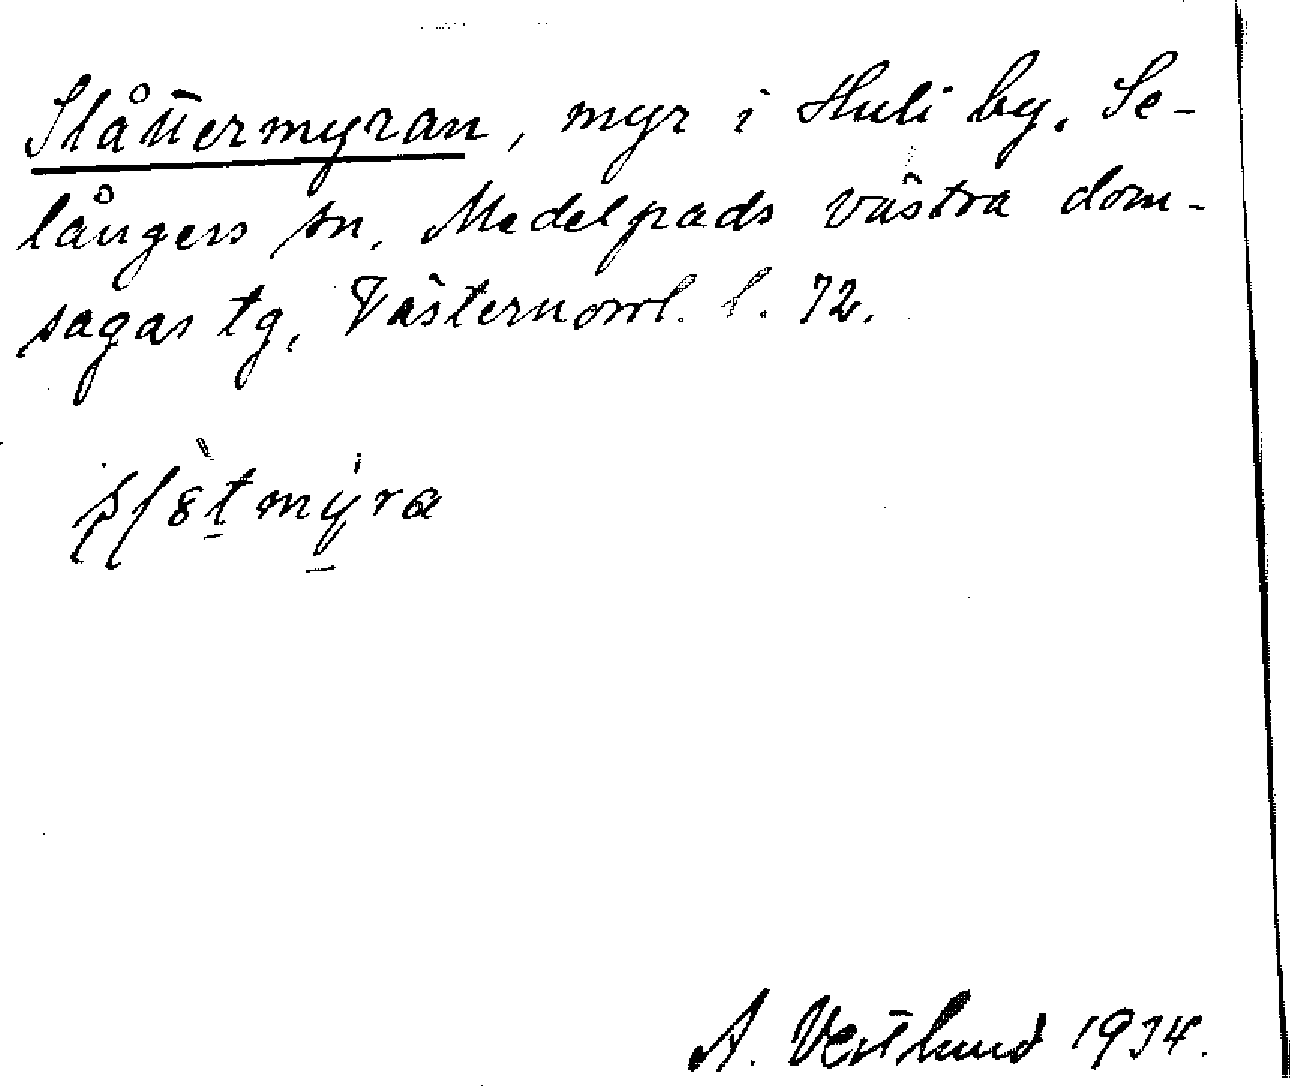 Slåttermyran, myr i Huli by, Se-
långers sn, Medelpads västra dom-
sagas tg, Västernorrl. l. 72.
A. Vestlund 1934.